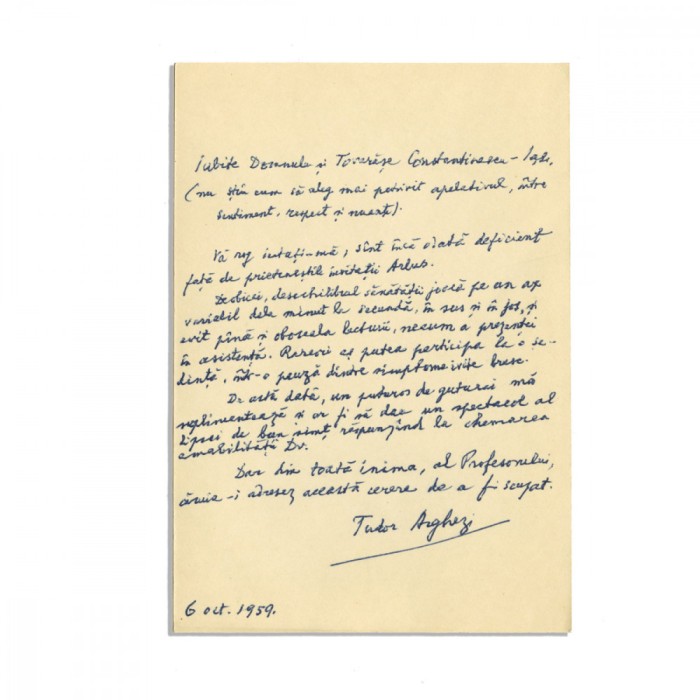 Iubite Domnule și Tovarășe Constantinescu-Iași,
(nu știu cum să aleg mai potrivit apelativul, între
sentiment, respect și nuanță).
Vă rog iertați-mă, sînt încă odată deficient
față de prieteneștile invitații Arlus.
Deobicei, desechilibrul sănătății joacă pe un ax
variabil dela minut la secundă, în sus și în jos, și
evit până și oboseala lecturii, necum a prezenței
în asistență. Rareori aș putea participa la o șe-
dință, într-o pauză dintre simptome ivite brusc.
De astă dată, un puturos de guturai mă
suplimentează și ar fi să dau un spectacol al
lipsei de bun simț răspunzând la chemarea
amabilității Dv.
Dar din toată inima, al Profesorului,
căruia-i adresez această cerere de a fi scuzat.
Tudor Arghezi
6 oct. 1959.